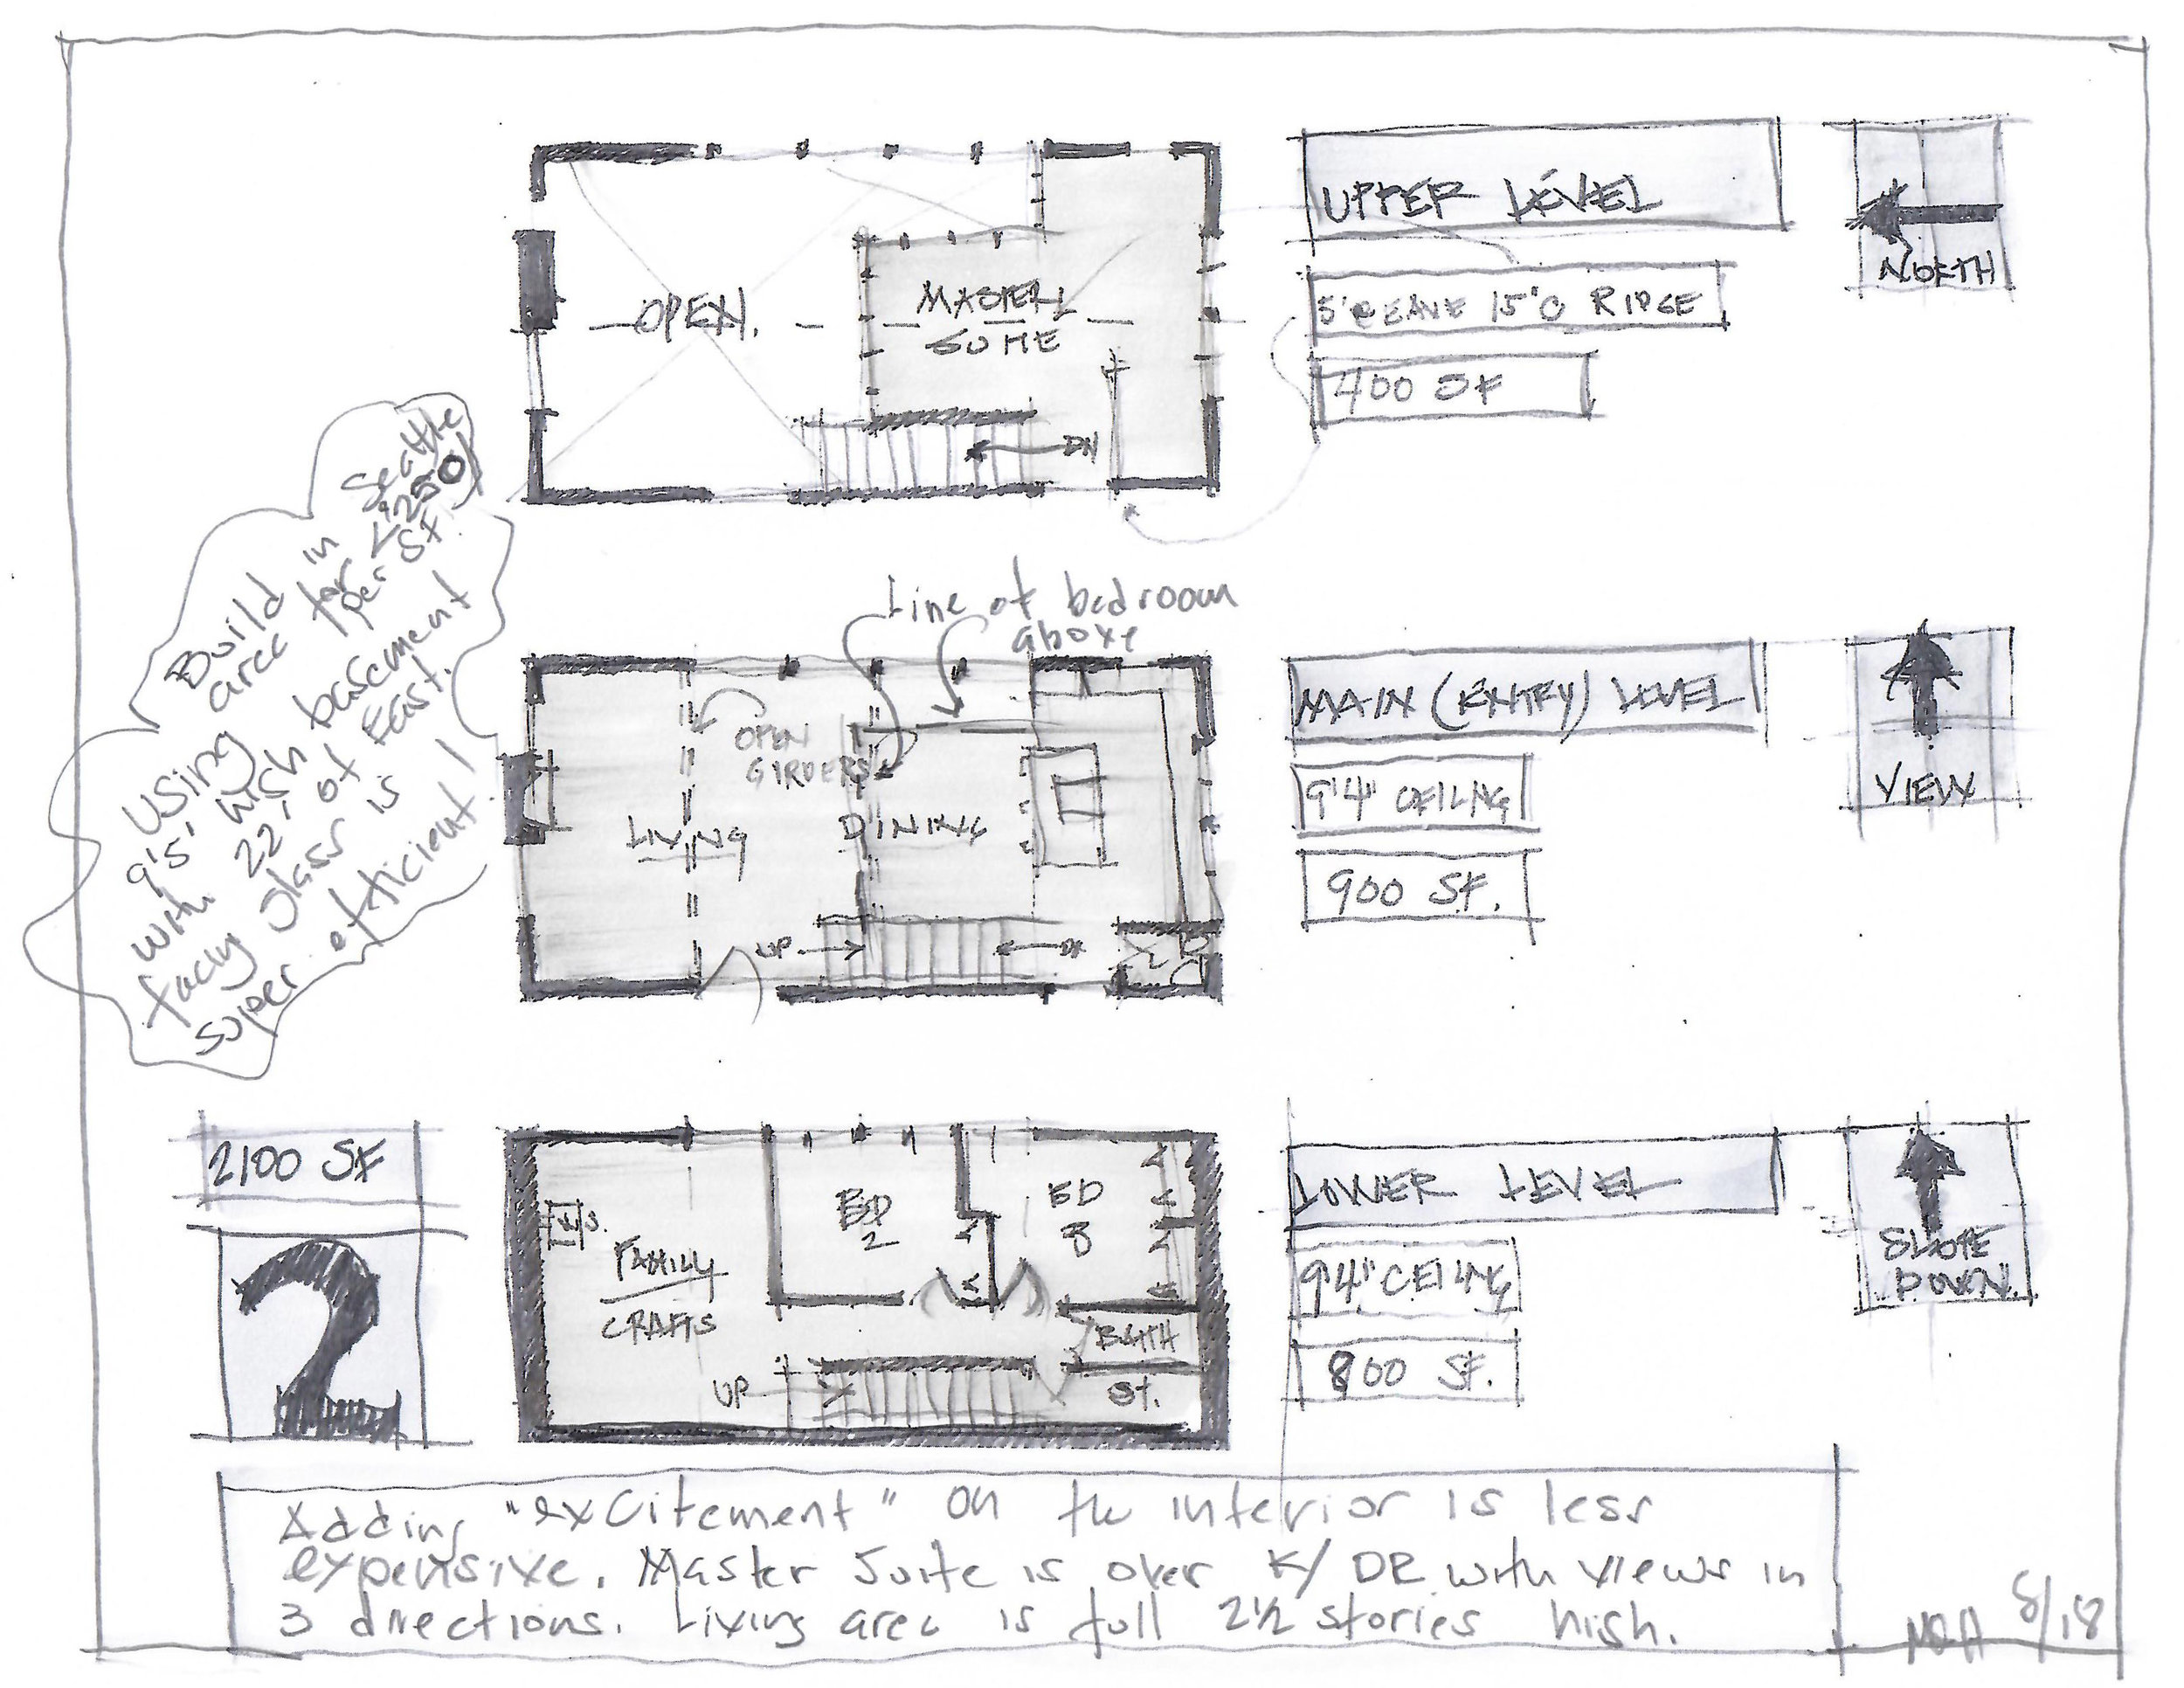 UPPER LEVEL
5'@ EAVE 15'@ RIDGE
400 SF
NORTH
OPEN.
MASTER
SUITE
DN
Build in Seattle
area for < $250
per SF.
Using
9'5" high basement
with 22' of East
facing glass is
super efficient!
Line of bedroom
above
OPEN
GIRDERS
LIVING
DINING
UP
DN
MAIN (ENTRY) LEVEL
9'4" CEILING
900 SF.
VIEW
2100 SF
2
FAMILY
CRAFTS
BD
2
BD
3
BATH
ST.
UP
LOWER LEVEL
9'4" CEILING
800 SF.
SLOPE
DOWN
Adding "excitement" on the interior is less
expensive. Master Suite is over K/DR with views in
3 directions. Living area is full 2½ stories high.
8/18